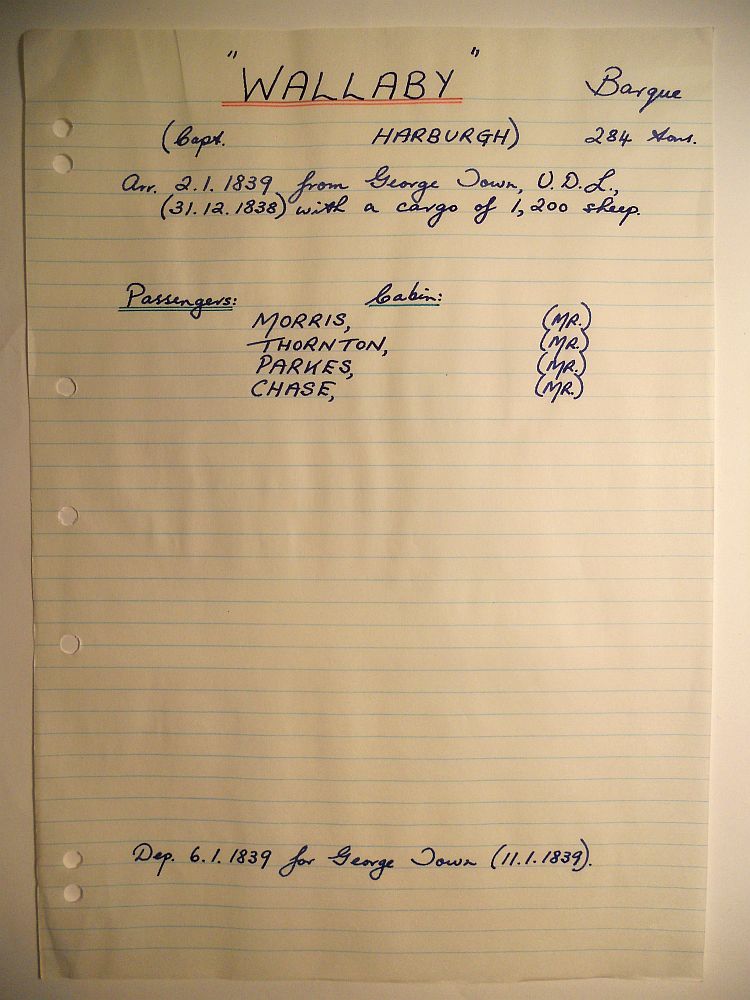 "WALLABY"
Barque
(Capt. HARBURGH) 284 tons.
Arr. 2.1.1839 from George Town, V.D.L.,
(31.12.1838) with a cargo of 1,200 sheep.
Passengers: Cabin:
MORRIS, (MR.)
THORNTON, (MR.)
PARKES, (MR.)
CHASE, (MR.)
Dep. 6.1.1839 for George Town (11.1.1839).